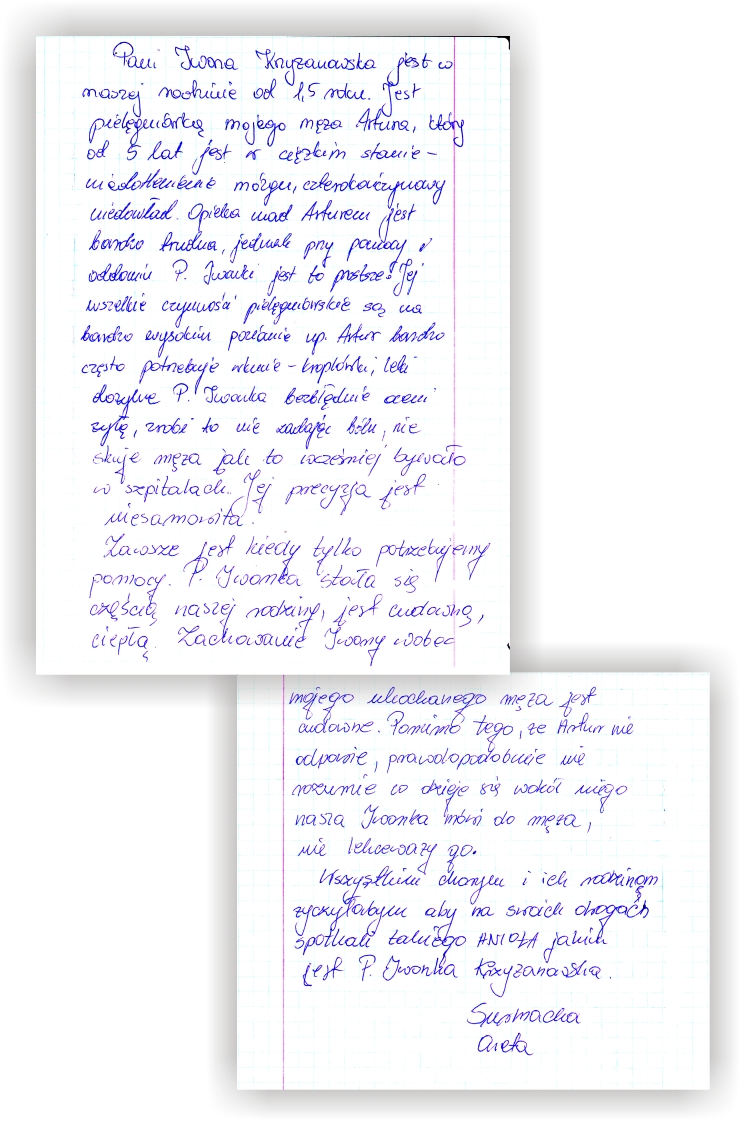 Pani Iwona Krzyżanowska jest w
naszej rodzinie od 1,5 roku. Jest
pielęgniarką mojego męża Artura, który
od 5 lat jest w ciężkim stanie –
niedotlenienie mózgu, czterokończynowy
niedowład. Opieka nad Arturem jest
bardzo trudna, jednak przy pomocy i
oddaniu P. Iwonki jest to prostsze! Jej
wszelkie czynności pielęgniarskie są na
bardzo wysokim poziomie np. Artur bardzo
często potrzebuje wkłucie – kroplówki, leki
dożylne P. Iwonka bezbłędnie oceni
żyłę, zrobi to nie zadając bólu, nie
skuje męża jak to wcześniej bywało
w szpitalach. Jej precyzja jest
niesamowita.
Zawsze jest kiedy tylko potrzebujemy
pomocy. P. Iwonka stała się
częścią naszej rodziny, jest cudowną,
ciepłą. Zachowanie Iwony wobec
mojego ukochanego męża jest
cudowne. Pomimo tego, że Artur nie
odpowie, prawdopodobnie nie
rozumie co dzieje się wokół niego
nasza Iwonka mówi do męża,
nie lekceważy go.
Wszystkim chorym i ich rodzinom
życzyłabym aby na swoich drogach
spotkali takiego ANIOŁA jakim
jest P. Iwonka Krzyżanowska.
Aneta